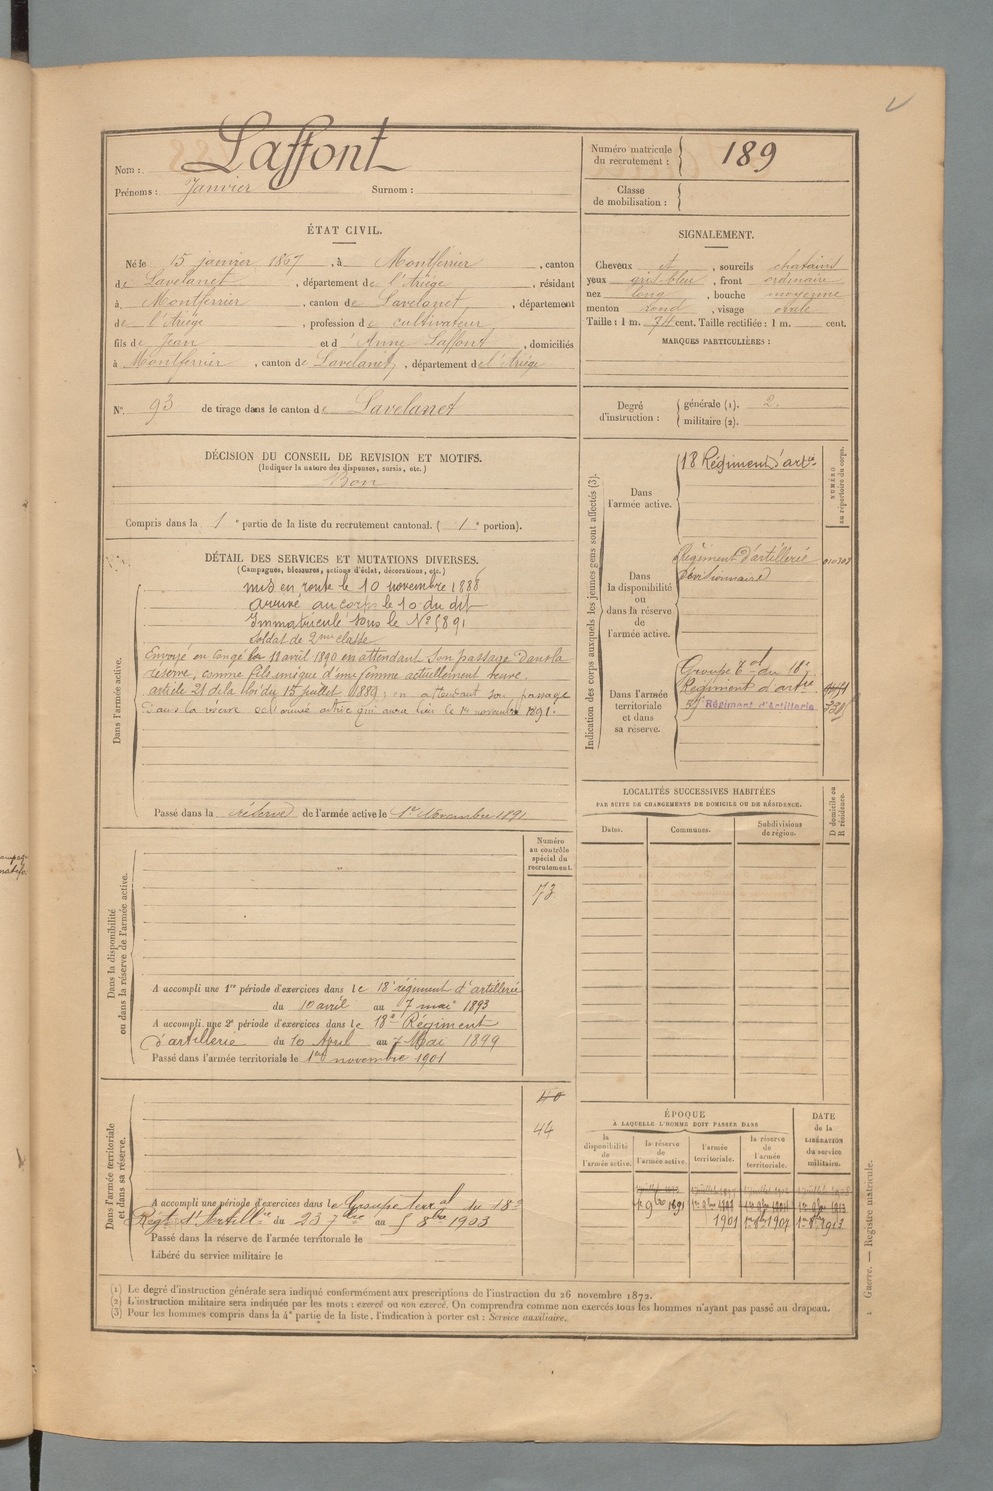 Nom : Laffont
Prénoms : Janvier Surnom :
Numéro matricule
du recrutement : 189
Classe
de mobilisation :
ÉTAT CIVIL.
Né le 15 janvier 1867, à Montferrier, canton
de Lavelanet, département de l'Ariège, résidant
à Montferrier, canton de Lavelanet, département
de l'Ariège, profession de cultivateur
fils de Jean et d'Anne Laffont, domiciliés
à Montferrier, canton de Lavelanet, département de l'Ariège
N° 93 de tirage dans le canton de Lavelanet
SIGNALEMENT.
Cheveux et, sourcils chatains
yeux gris bleu, front ordinaire
nez long, bouche moyenne
menton rond, visage ovale
Taille : 1 m. 74 cent. Taille rectifiée : 1 m. cent.
MARQUES PARTICULIÈRES :
Degré
d'instruction :
générale (1). 2.
militaire (2).
DÉCISION DU CONSEIL DE REVISION ET MOTIFS.
(Indiquer la nature des dispenses, sursis, etc.)
Bon
Compris dans la 1e partie de la liste du recrutement cantonal. ( 1e portion).
DÉTAIL DES SERVICES ET MUTATIONS DIVERSES.
(Campagnes, blessures, actions d'éclat, décorations, etc.)
Dans l'armée active.
mis en route le 10 novembre 1888
arrivé au corps le 10 du dit
Immatriculé sous le N° 5891
Soldat de 2me classe
Envoyé en congé le 11 avril 1890 en attendant son passage dans la
réserve, comme fils unique d'une femme actuellement veuve.
article 21 de la loi du 15 juillet 1889; en attendant son passage
dans la réserve de l'armée active qui aura lieu le 1er novembre 1891.
Passé dans la réserve de l'armée active le 1er Novembre 1891
Indication des corps auxquels les jeunes gens sont affectés (3).
NUMÉRO
au répertoire du corps.
Dans
l'armée active.
18 Régiment d'artie
Dans
la disponibilité
ou
dans la réserve
de
l'armée active.
Régiment d'artillerie
divisionnaire
Dans l'armée
territoriale
et dans
sa réserve.
Groupe tal du 18e
Régiment d'artie
Régiment d'Artillerie
LOCALITÉS SUCCESSIVES HABITÉES
PAR SUITE DE CHANGEMENTS DE DOMICILE OU DE RÉSIDENCE.
Dates.
Communes.
Subdivisions
de région.
D domicile ou
R résidence.
Dans la disponibilité
ou dans la réserve de l'armée active.
Numéro
au contrôle
spécial du
recrutement.
73
A accompli une 1re période d'exercices dans le 18e régiment d'artillerie
du 10 avril au 7 mai 1893
A accompli une 2e période d'exercices dans le 18e Régiment
d'artillerie du 10 April au 7 Mai 1899
Passé dans l'armée territoriale le 1er novembre 1901
Dans l'armée territoriale
et dans sa réserve.
40
44
A accompli une période d'exercices dans le Groupe terral du 18e
Régt d'Artillie du 23 7bre au 5 8bre 1903
Passé dans la réserve de l'armée territoriale le
Libéré du service militaire le
ÉPOQUE
À LAQUELLE L'HOMME DOIT PASSER DANS
la
disponibilité
de
l'armée active.
la réserve
de
l'armée active.
l'armée
territoriale.
la réserve
de
l'armée
territoriale.
DATE
de la
LIBÉRATION
du service
militaire.
1er 9bre 1891
1901
1er 9bre 1907
1er 9bre 1913
(1) Le degré d'instruction générale sera indiqué conformément aux prescriptions de l'instruction du 26 novembre 1872.
(2) L'instruction militaire sera indiquée par les mots : exercé ou non exercé. On comprendra comme non exercés tous les hommes n'ayant pas passé au drapeau.
(3) Pour les hommes compris dans la 4e partie de la liste, l'indication à porter est : Service auxiliaire.
Guerre. — Registre matricule.